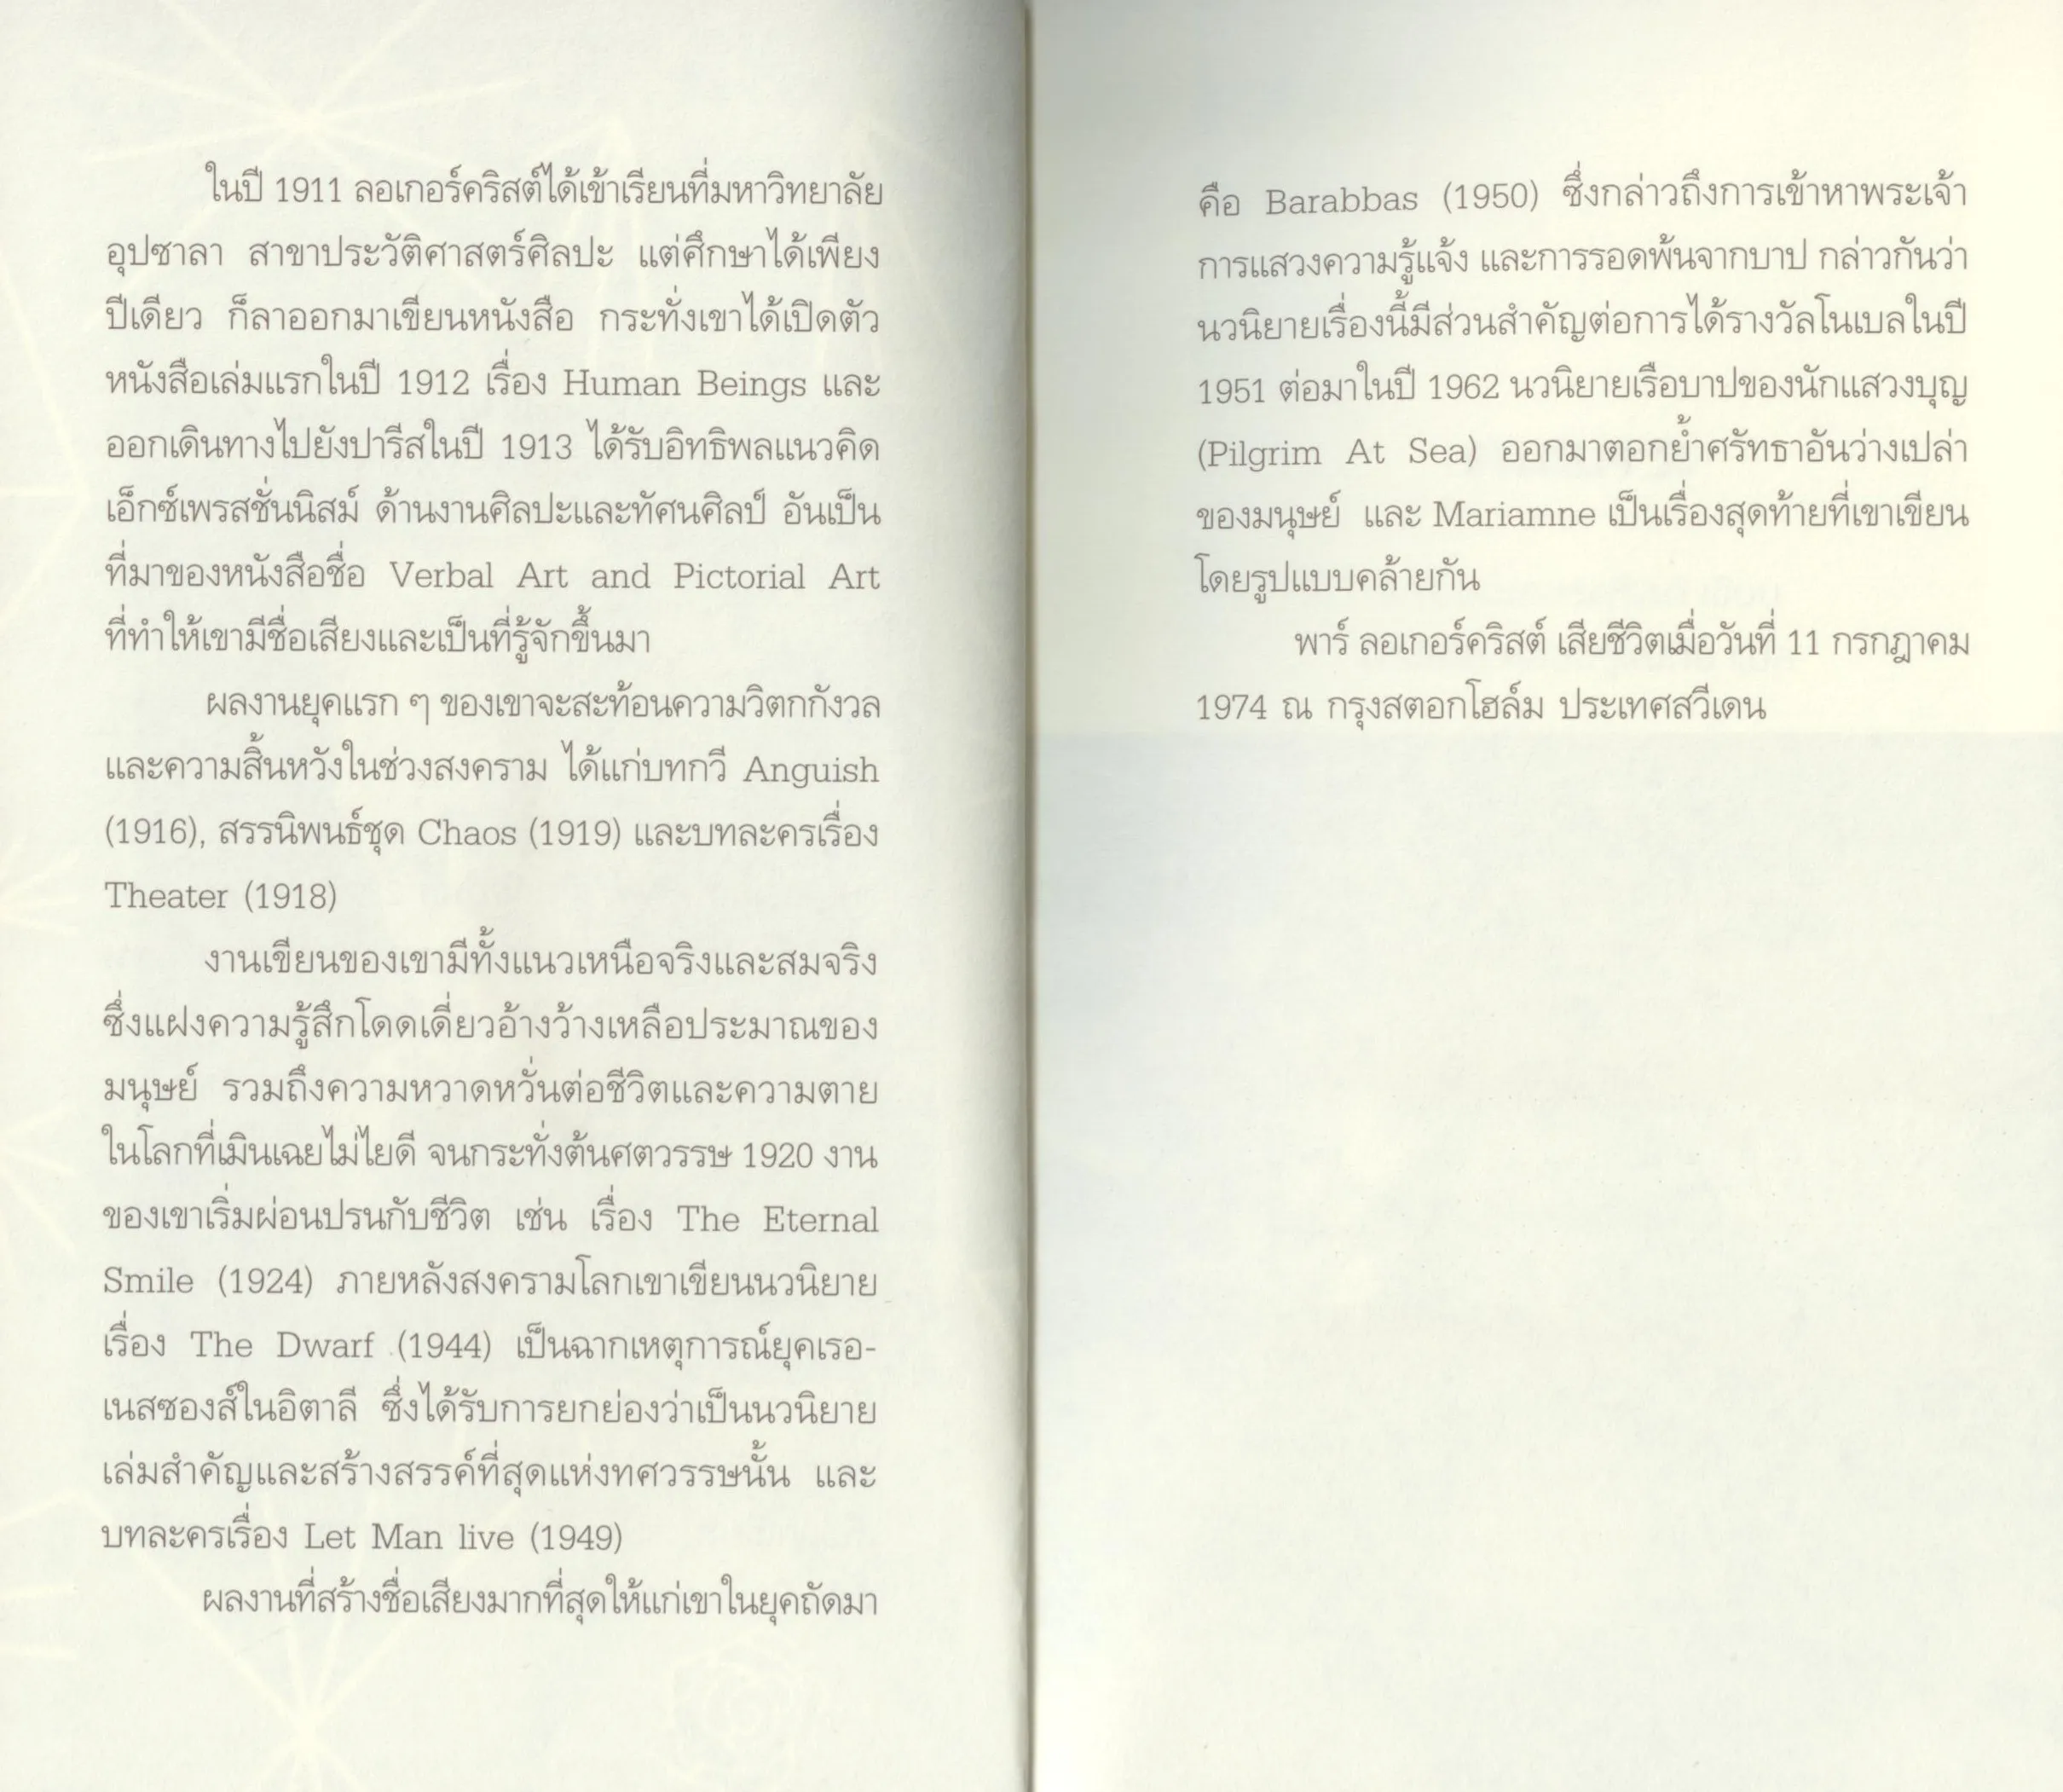 ในปี 1911 ลอเกอร์คริสต์ได้เข้าเรียนที่มหาวิทยาลัย
อุปซาลา สาขาประวัติศาสตร์ศิลปะ แต่ศึกษาได้เพียง
ปีเดียว ก็ลาออกมาเขียนหนังสือ กระทั่งเขาได้เปิดตัว
หนังสือเล่มแรกในปี 1912 เรื่อง Human Beings และ
ออกเดินทางไปยังปารีสในปี 1913 ได้รับอิทธิพลแนวคิด
เอ็กซ์เพรสชั่นนิสม์ ด้านงานศิลปะและทัศนศิลป์ อันเป็น
ที่มาของหนังสือชื่อ Verbal Art and Pictorial Art
ที่ทำให้เขามีชื่อเสียงและเป็นที่รู้จักขึ้นมา
ผลงานยุคแรก ๆ ของเขาจะสะท้อนความวิตกกังวล
และความสิ้นหวังในช่วงสงคราม ได้แก่บทกวี Anguish
(1916), สรรนิพนธ์ชุด Chaos (1919) และบทละครเรื่อง
Theater (1918)
งานเขียนของเขามีทั้งแนวเหนือจริงและสมจริง
ซึ่งแฝงความรู้สึกโดดเดี่ยวอ้างว้างเหลือประมาณของ
มนุษย์ รวมถึงความหวาดหวั่นต่อชีวิตและความตาย
ในโลกที่เมินเฉยไม่ไยดี จนกระทั่งต้นศตวรรษ 1920 งาน
ของเขาเริ่มผ่อนปรนกับชีวิต เช่น เรื่อง The Eternal
Smile (1924) ภายหลังสงครามโลกเขาเขียนนวนิยาย
เรื่อง The Dwarf (1944) เป็นฉากเหตุการณ์ยุคเรอ-
เนสซองส์ในอิตาลี ซึ่งได้รับการยกย่องว่าเป็นนวนิยาย
เล่มสำคัญและสร้างสรรค์ที่สุดแห่งทศวรรษนั้น และ
บทละครเรื่อง Let Man live (1949)
ผลงานที่สร้างชื่อเสียงมากที่สุดให้แก่เขาในยุคถัดมา
คือ Barabbas (1950) ซึ่งกล่าวถึงการเข้าหาพระเจ้า
การแสวงความรู้แจ้ง และการรอดพ้นจากบาป กล่าวกันว่า
นวนิยายเรื่องนี้มีส่วนสำคัญต่อการได้รางวัลโนเบลในปี
1951 ต่อมาในปี 1962 นวนิยายเรือบาปของนักแสวงบุญ
(Pilgrim At Sea) ออกมาตอกย้ำศรัทธาอันว่างเปล่า
ของมนุษย์ และ Mariamne เป็นเรื่องสุดท้ายที่เขาเขียน
โดยรูปแบบคล้ายกัน
พาร์ ลอเกอร์คริสต์ เสียชีวิตเมื่อวันที่ 11 กรกฎาคม
1974 ณ กรุงสตอกโฮล์ม ประเทศสวีเดน